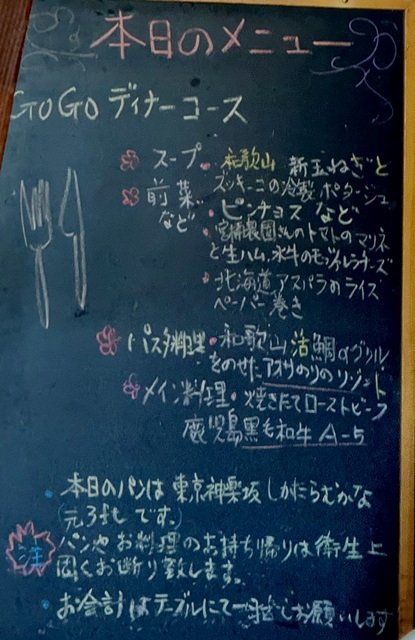 本日のメニュー
GOGO ディナーコース
スープ・和歌山 新玉ねぎと
ズッキーニの冷製ポタージュ
前菜など・ピンチョスなど
・農園さんのトマトのマリネ
と生ハム、水牛のモッツァレラチーズ
・北海道アスパラのライス
ペーパー巻き
パスタ料理・和歌山活鯛のグリル
をのせたアオサのりのリゾット
メイン料理・焼きたてローストビーフ
鹿児島黒毛和牛A-5
・本日のパンは東京神楽坂
です。)
注 パンやお料理のお持ち帰りは衛生上
固くお断り致します。
・お会計はテーブルにて お願いします